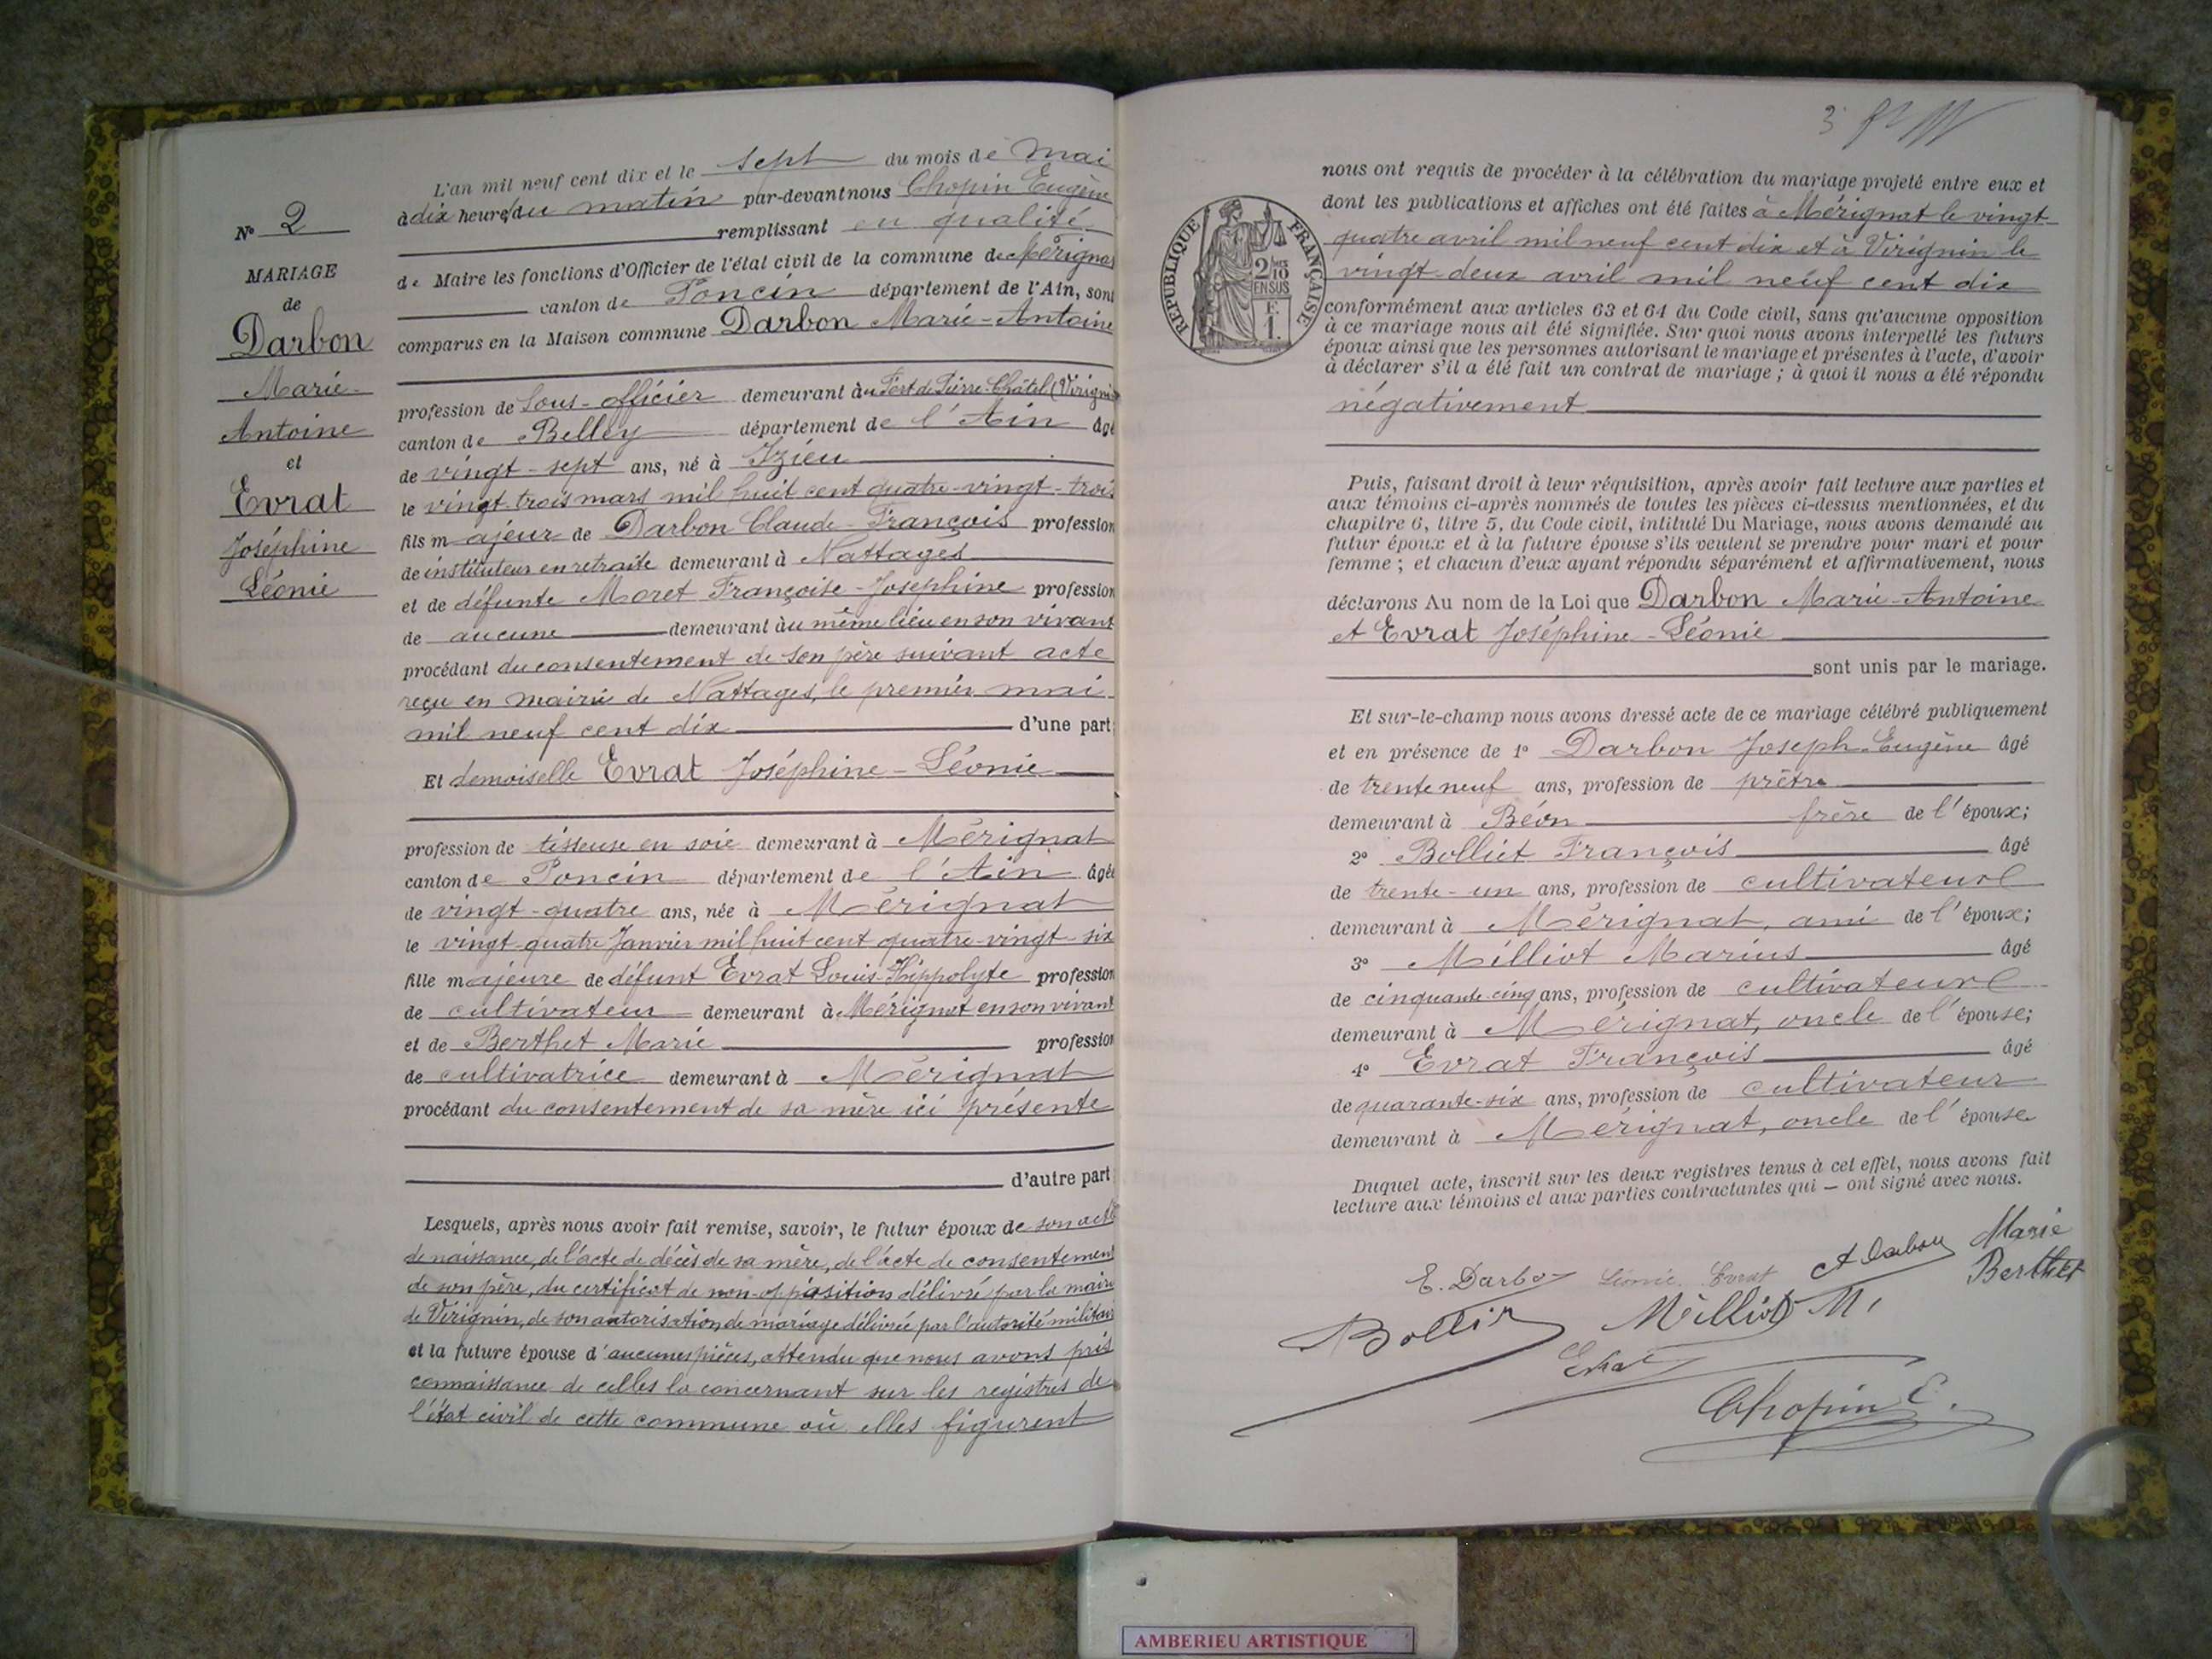 N° 2
MARIAGE
de
Darbon
Marie-
Antoine
et
Evrat
Joséphine
Léonie
L'an mil neuf cent dix et le sept du mois de Mai
à dix heures du matin par-devant nous Chopin Eugène
remplissant en qualité
de Maire les fonctions d'Officier de l'état civil de la commune de Mérignat
canton de Poncin département de l'Ain, sont
comparus en la Maison commune Darbon Marie-Antoine
profession de Sous-officier demeurant au Fort de Pierre-Châtel (Virignin
canton de Belley département de l'Ain âgé
de vingt-sept ans, né à Izieu
le vingt-trois mars mil huit cent quatre-vingt-trois
fils majeur de Darbon Claude-François profession
de instituteur en retraite demeurant à Nattages
et de défunte Moret Françoise-Joséphine profession
de aucune demeurant au même lieu en son vivant
procédant du consentement de son père suivant acte
reçu en mairie de Nattages, le premier mai
mil neuf cent dix d'une part
Et demoiselle Evrat Joséphine-Léonie
profession de tisseuse en soie demeurant à Mérignat
canton de Poncin département de l'Ain âgée
de vingt-quatre ans, née à Mérignat
le vingt-quatre Janvier mil huit cent quatre-vingt-six
fille majeure de défunt Evrat Louis-Hippolyte profession
de cultivateur demeurant à Mérignat en son vivant
et de Berthet Marie profession
de cultivatrice demeurant à Mérignat
procédant du consentement de sa mère ici présente
d'autre part
Lesquels, après nous avoir fait remise, savoir, le futur époux de son acte
de naissance, de l'acte de décès de sa mère, de l'acte de consentement
de son père, du certificat de non-opposition délivré par le maire
de Virignin, de son autorisation de mariage délivrée par l'autorité militaire
et la future épouse d'aucunes pièces, attendu que nous avons pris
connaissance de celles la concernant sur les registres de
l'état civil de cette commune où elles figurent
3
RÉPUBLIQUE FRANÇAISE
2/10
EN SUS
F.
1.
nous ont requis de procéder à la célébration du mariage projeté entre eux et
dont les publications et affiches ont été faites à Mérignat le vingt-
quatre avril mil neuf cent dix et à Virignin le
vingt-deux avril mil neuf cent dix
conformément aux articles 63 et 64 du Code civil, sans qu'aucune opposition
à ce mariage nous ait été signifiée. Sur quoi nous avons interpellé les futurs
époux ainsi que les personnes autorisant le mariage et présentes à l'acte, d'avoir
à déclarer s'il a été fait un contrat de mariage ; à quoi il nous a été répondu
négativement
Puis, faisant droit à leur réquisition, après avoir fait lecture aux parties et
aux témoins ci-après nommés de toutes les pièces ci-dessus mentionnées, et du
chapitre 6, titre 5, du Code civil, intitulé Du Mariage, nous avons demandé au
futur époux et à la future épouse s'ils veulent se prendre pour mari et pour
femme ; et chacun d'eux ayant répondu séparément et affirmativement, nous
déclarons Au nom de la Loi que Darbon Marie-Antoine
et Evrat Joséphine-Léonie
sont unis par le mariage.
Et sur-le-champ nous avons dressé acte de ce mariage célébré publiquement
et en présence de 1° Darbon Joseph-Eugène âgé
de trente neuf ans, profession de prêtre
demeurant à Béon frère de l'époux;
2° Bolliet François âgé
de trente-un ans, profession de cultivateur
demeurant à Mérignat, ami de l'époux;
3° Milliot Marius âgé
de cinquante-cinq ans, profession de cultivateur
demeurant à Mérignat, oncle de l'épouse;
4° Evrat François âgé
de quarante-six ans, profession de cultivateur
demeurant à Mérignat, oncle de l'épouse
Duquel acte, inscrit sur les deux registres tenus à cet effet, nous avons fait
lecture aux témoins et aux parties contractantes qui — ont signé avec nous.
E. Darbon Léonie Evrat A Darbon Marie
Berthet
Milliot M.
Evrat
Chopin E.
AMBERIEU ARTISTIQUE